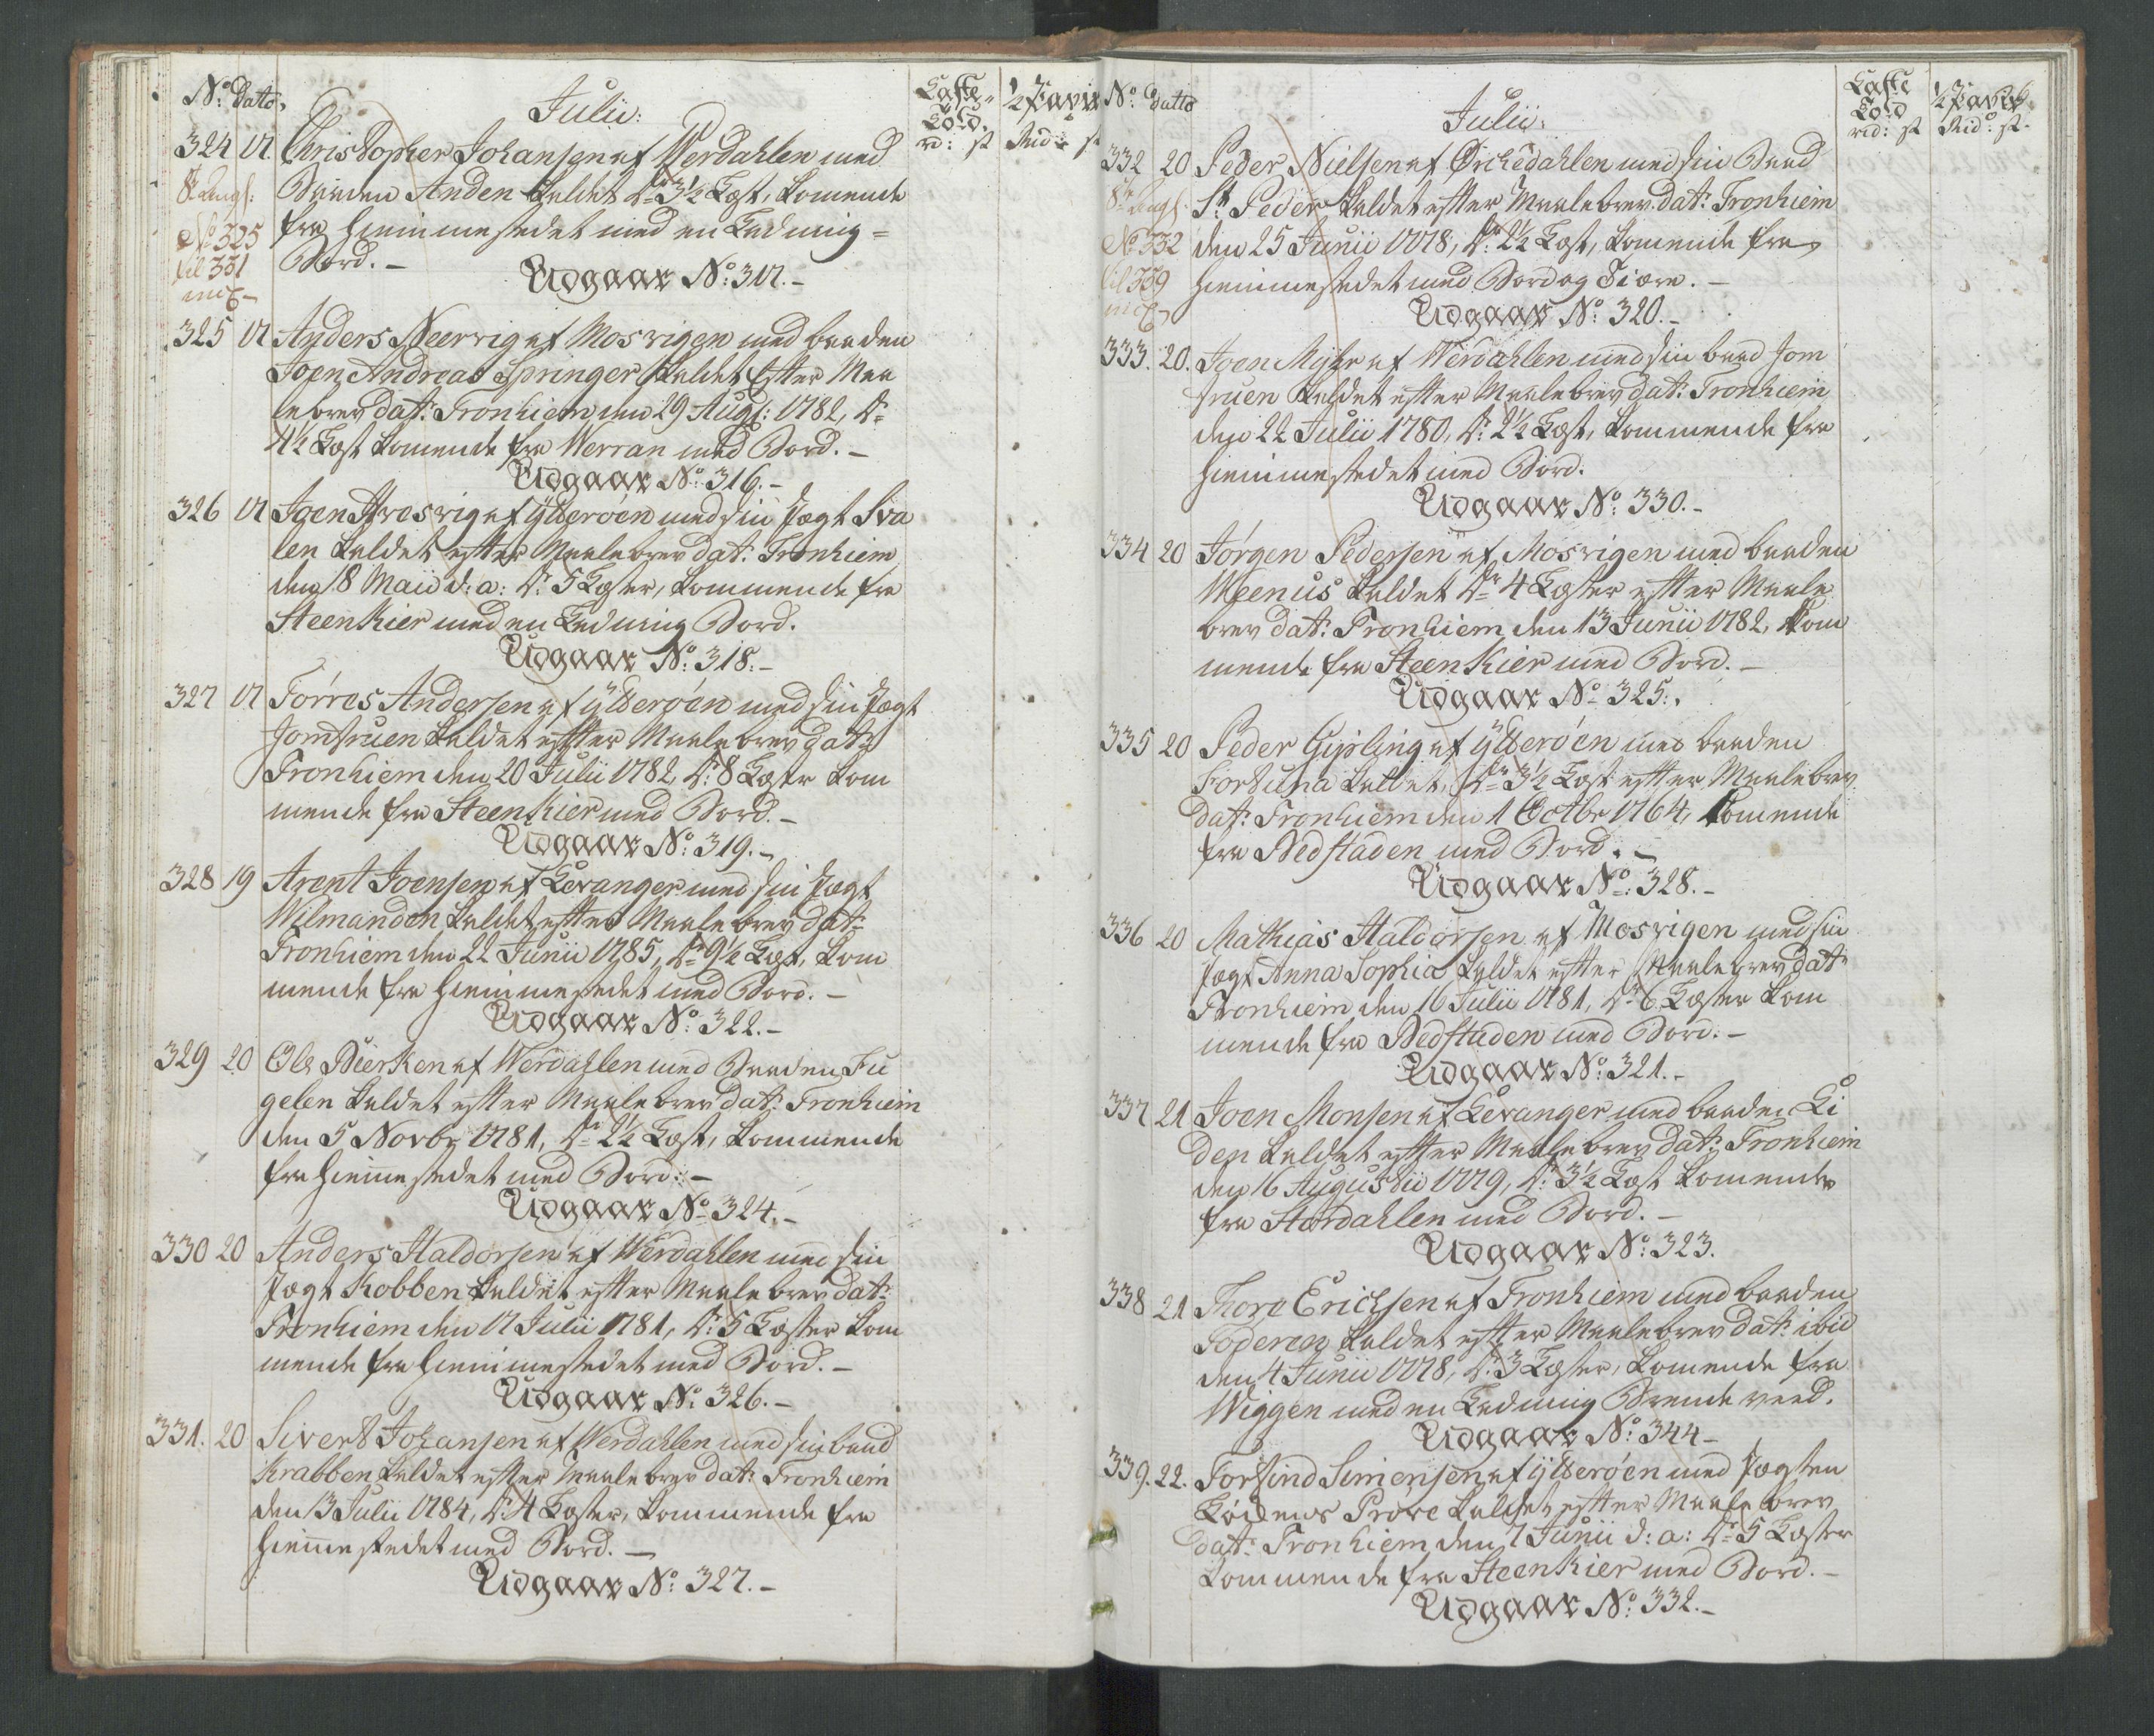 No: Dato,
Julii:
Læste-
Told.
rd: st
½ Favn
Rid: s
324 17. Christopher Johansen af Werdahlen med
Baaden Anden kaldet Dr: 3½ Læst, komende
fra hiemmestedet med en Ladning
Bord. -
Udgaar No: 317. -
No 325
til 331
incl. -
325 17 Anders Neervig af Mosvigen med baaden
Joen Andreas Springer kaldet Efter Maa
lebrev dat: Tronhiem den 29 Aug: 1782, Dr:
4½ Læst komende fra Werran med Bord. -
Udgaar No: 316. -
326 17 Joen af Ytterøen med sin Jægt Sva
len kaldet efter Maalebrev dat: Tronhiem
den 18 Maii d: a: Dr: 5 Læster, kommende fra
Steenkier med en Ladning Bord.
Udgaar No: 318. -
327 17 Tørres Andersen af Ytterøen med sin Jægt
Jomfruen kaldet efter Maalebrev dat:
Tronhiem den 20 Julii 1782, Dr: 8 Læster kom
mende fra Steenkier med Bord. -
Udgaar No: 319. -
328 19 Arent Joensen af Levanger med sin Jægt
Wilmanden kaldet efter Maalebrev dat:
Tronhiem den 22 Junii 1785, Dr: 9½ Læst, kom
mende fra hiemmestedet med Bord. -
Udgaar No: 322. -
329 20 Ole Bierken af Werdahlen med Baaden Fu
gelen kaldet efter Maalebrev dat: Tronhiem
den 5 Novbr 1781, Dr: 2½ Læst, kommende
fra hiemmestedet med Bord: -
Udgaar No: 324. -
330 20 Anders Haldorsen af Werdahlen med sin
Jægt Kobben kaldet efter Maalebrev dat:
Tronhiem den 17 Julii 1781, Dr: 5 Læster kom
mende fra hiemmestedet med Bord. -
Udgaar No: 326. -
331. 20 Sivert Johansen af Werdahlen med sin baad
Krabben kaldet efter Maalebrev dat: Tronhiem
den 13 Julii 1784, Dr: 4 Læster, kommende fra
hiemmestedet med Bord. -
Udgaar No: 327. -
No: Datto
Julii:
Læste
Told
rd: st
½ Favn
Rid: st.
332 20 Peder Nielsen af Ørchedahlen med sin Baad
St Peder kaldet efter Maalebrev dat: Tronhiem
den 25 Junii 1778, Dr: 2½ Læst, komende fra
hiemmestedet med Bord og Tiære. -
Udgaar No: 320. -
No 332
til 339
incl. -
333. 20. Joen Myhr af Werdahlen med sin baad Jom
fruen kaldet efter Maalebrev dat: Tronhiem
den 22 Julii 1780, Dr: 2½ Læst, kommende fra
hiemmestedet med Bord.
Udgaar No: 330. -
334 20 Jørgen Pedersen af Mosvigen med baaden
Weenus kaldet Dr: 4 Læster efter Maale
brev dat: Tronhiem den 13 Junii 1782, kom
mende fra Steenkier med Bord. -
Udgaar No: 325.
335 20 Peder Gipling af Ytterøen med baaden
Fortuna kaldet, Dr: 3½ Læst efter Maalebrev
dat: Tronhiem den 1 Octbr 1764, komende
fra Bedstaden med Bord. -
Udgaar No: 328. -
336 20 Mathias Haldorsen af Mosvigen med sin
Jægt Anna Sophia kaldet efter Maalebrev dat:
Tronhiem den 16 Julii 1781, Dr: 6 Læster kom
mende fra Bedstaden med Bord. -
Udgaar No: 321. -
337 21 Joen Monsen af Levanger med baaden Li
den kaldet efter Maalebrev dat: Tronhiem
den 16 Augustii 1779, Dr: 3½ Læst komende
fra Størdahlen med Bord. -
Udgaar No: 323.
338 21 Thore Erichsen af Tronhiem med baaden
kaldet efter Maalebrev dat: ibid
den 4 Junii 1778, Dr: 3 Læster, komende fra
Wiggen med en Ladning Brendeveed.
Udgaar No: 344 -
339. 22. Torsind Simensen af Ytterøen med Jægten
Prøve kaldet efter Maalebrev
dat: Tronhiem den 7 Junii d: a: Dr: 5 Læster
kommende fra Steenkier med Bord. -
Udgaar No: 332. -